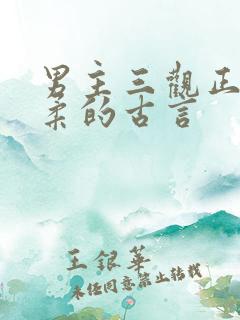 男主三觀正
柔的古言
王銀華
未经同意禁止转载